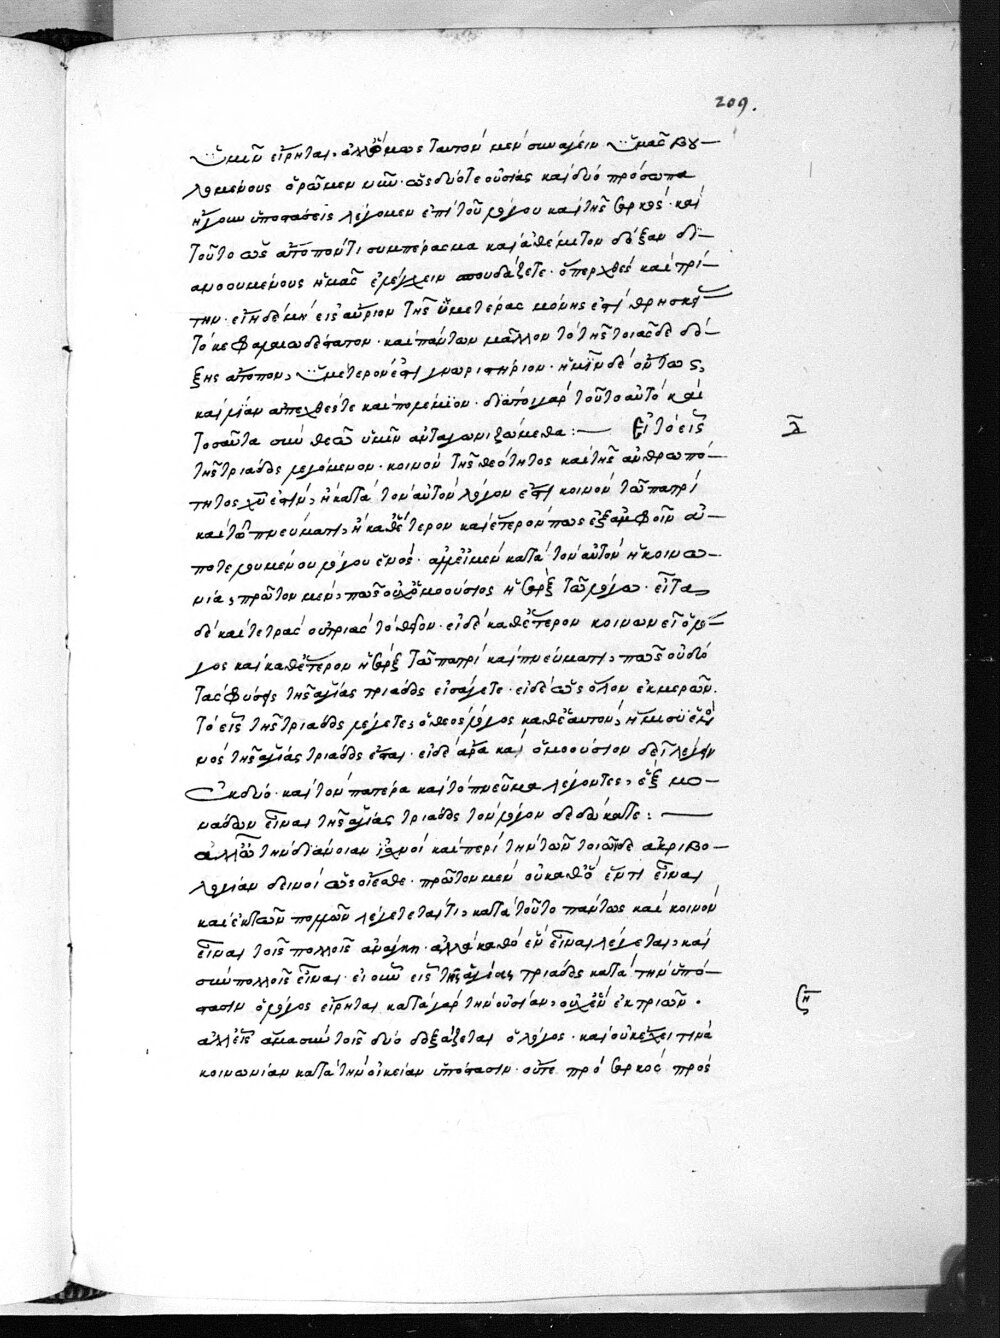 209.
ὑμῖν εἴρηται, ἀλλ' ὅμως ταυτὸν μὲν συνάγειν ὑμᾶς βου-
λομένους ὁρῶμεν νῦν· ὡς δύο τε οὐσίας καὶ δύο πρόσωπα
ἤγουν ὑποστάσεις λέγομεν ἐπὶ τοῦ λόγου καὶ τῆς σαρκός· καὶ
τοῦτο ὡς ἄτοπόν τι συμπέρασμα καὶ ἀθέμιτον δόξαν δι-
ανοουμένους ἡμᾶς ἐλέγχειν σπουδάζετε· ὅπερ χθὲς καὶ τρί-
την· εἰ δὲ μὴ εἰς αὔριον τῆς ὑμετέρας μόνης ἐστὶ θρησκείας
τὸ κεφαλαιωδέστατον· καὶ πάντων μᾶλλον τὸ τῆς τοιᾶσδε δό-
ξης ἄτοπον, ὑμέτερόν ἐστι γνωριστήριον· ἡμῖν δὲ ὄντως,
καὶ λίαν ἀπεχθές τε καὶ πολέμιον· διάτοι γὰρ τοῦτο αὐτὸ καὶ
τοσαῦτα σὺν θεῶ ὑμῖν ἀνταγωνιζώμεθα: — Εἰ τὸ εἷς
λ
τῆς τριάδος λεγόμενον· κοινὸν τῆς θεότητος καὶ τῆς ἀνθρωπό-
τητος χυ ἐστίν, ἢ κατὰ τὸν αὐτὸν λόγον ἐστὶ κοινὸν τῶ πατρὶ
καὶ τῶ πνεύματι, ἢ καθ' ἕτερον καὶ ἕτερόν πως ἐξ ἀμφοῖν ἀ-
ποτελουμένου λόγου ἑνός· ἀλλ' εἰ μὲν κατὰ τὸν αὐτὸν ἡ κοινω-
νία, πρῶτον μέν, πῶς οὐχ ὁμοούσιος ἡ σὰρξ τῶ λόγω· εἶτα
δὲ καὶ τετρὰς οὐ τριὰς τὸ θεῖον· εἰ δὲ καθ' ἕτερον κοινωνεῖ ὁ λό-
γος καὶ καθ' ἕτερον ἡ σὰρξ τῶ πατρὶ καὶ πνεύματι, πῶς οὐ δύο
τὰς φύσεις τῆς ἁγίας τριάδος εἰσάγετε· εἰ δὲ ὡς ὅλον ἐκ μερῶν.
τὸ εἷς τῆς τριάδος λέγετε, ὁ θεὸς λόγος καθ' ἑαυτόν, ἥμισυ ἑνὸς
μὸς τῆς ἁγίας τριάδος ἔσται· εἰ δὲ ἄρα καὶ ὁμοούσιον δεῖ λέγειν
Ἐκ δύο· καὶ τὸν πατέρα καὶ τὸ πνεῦμα λέγοντες, ἐξ μο-
νάδων εἶναι τῆς ἁγίας τριάδος τὸν λόγον δεδώκατε: —
ἀλλ' ὦ τὴν διάνοιαν ἰσχνοὶ καὶ περὶ τὴν τῶν τοιῶνδε ἀκριβο-
λογίαν δεινοὶ ὡς οἴεσθε· πρῶτον μὲν οὐ καθ' ὃ ἕν τι εἶναι
καὶ ἐκ τῶν πολλῶν λέγεταί τι, κατὰ τοῦτο πάντως καὶ κοινὸν
εἶναι τοῖς πολλοῖς ἀνάγκη· ἀλλὰ καθὸ ἓν εἶναι λέγεται, καὶ
σὺν πολλοῖς εἶναι· εἰ οὖν εἷς τῆς ἁγίας τριάδος κατὰ τὴν ὑπό-
στασιν ὁ λόγος εἴρηται κατὰ γὰρ τὴν οὐσίαν, οὐχ ἓν ἐκ τριῶν·
ἀλλ' εἷς ἅμα σὺν τοῖς δυὸ δοξάζεται ὁ λόγος· καὶ οὐκ ἔχει τινὰ
κοινωνίαν κατὰ τὴν οἰκείαν ὑπόστασιν· οὔτε πρὸ σαρκὸς πρὸς